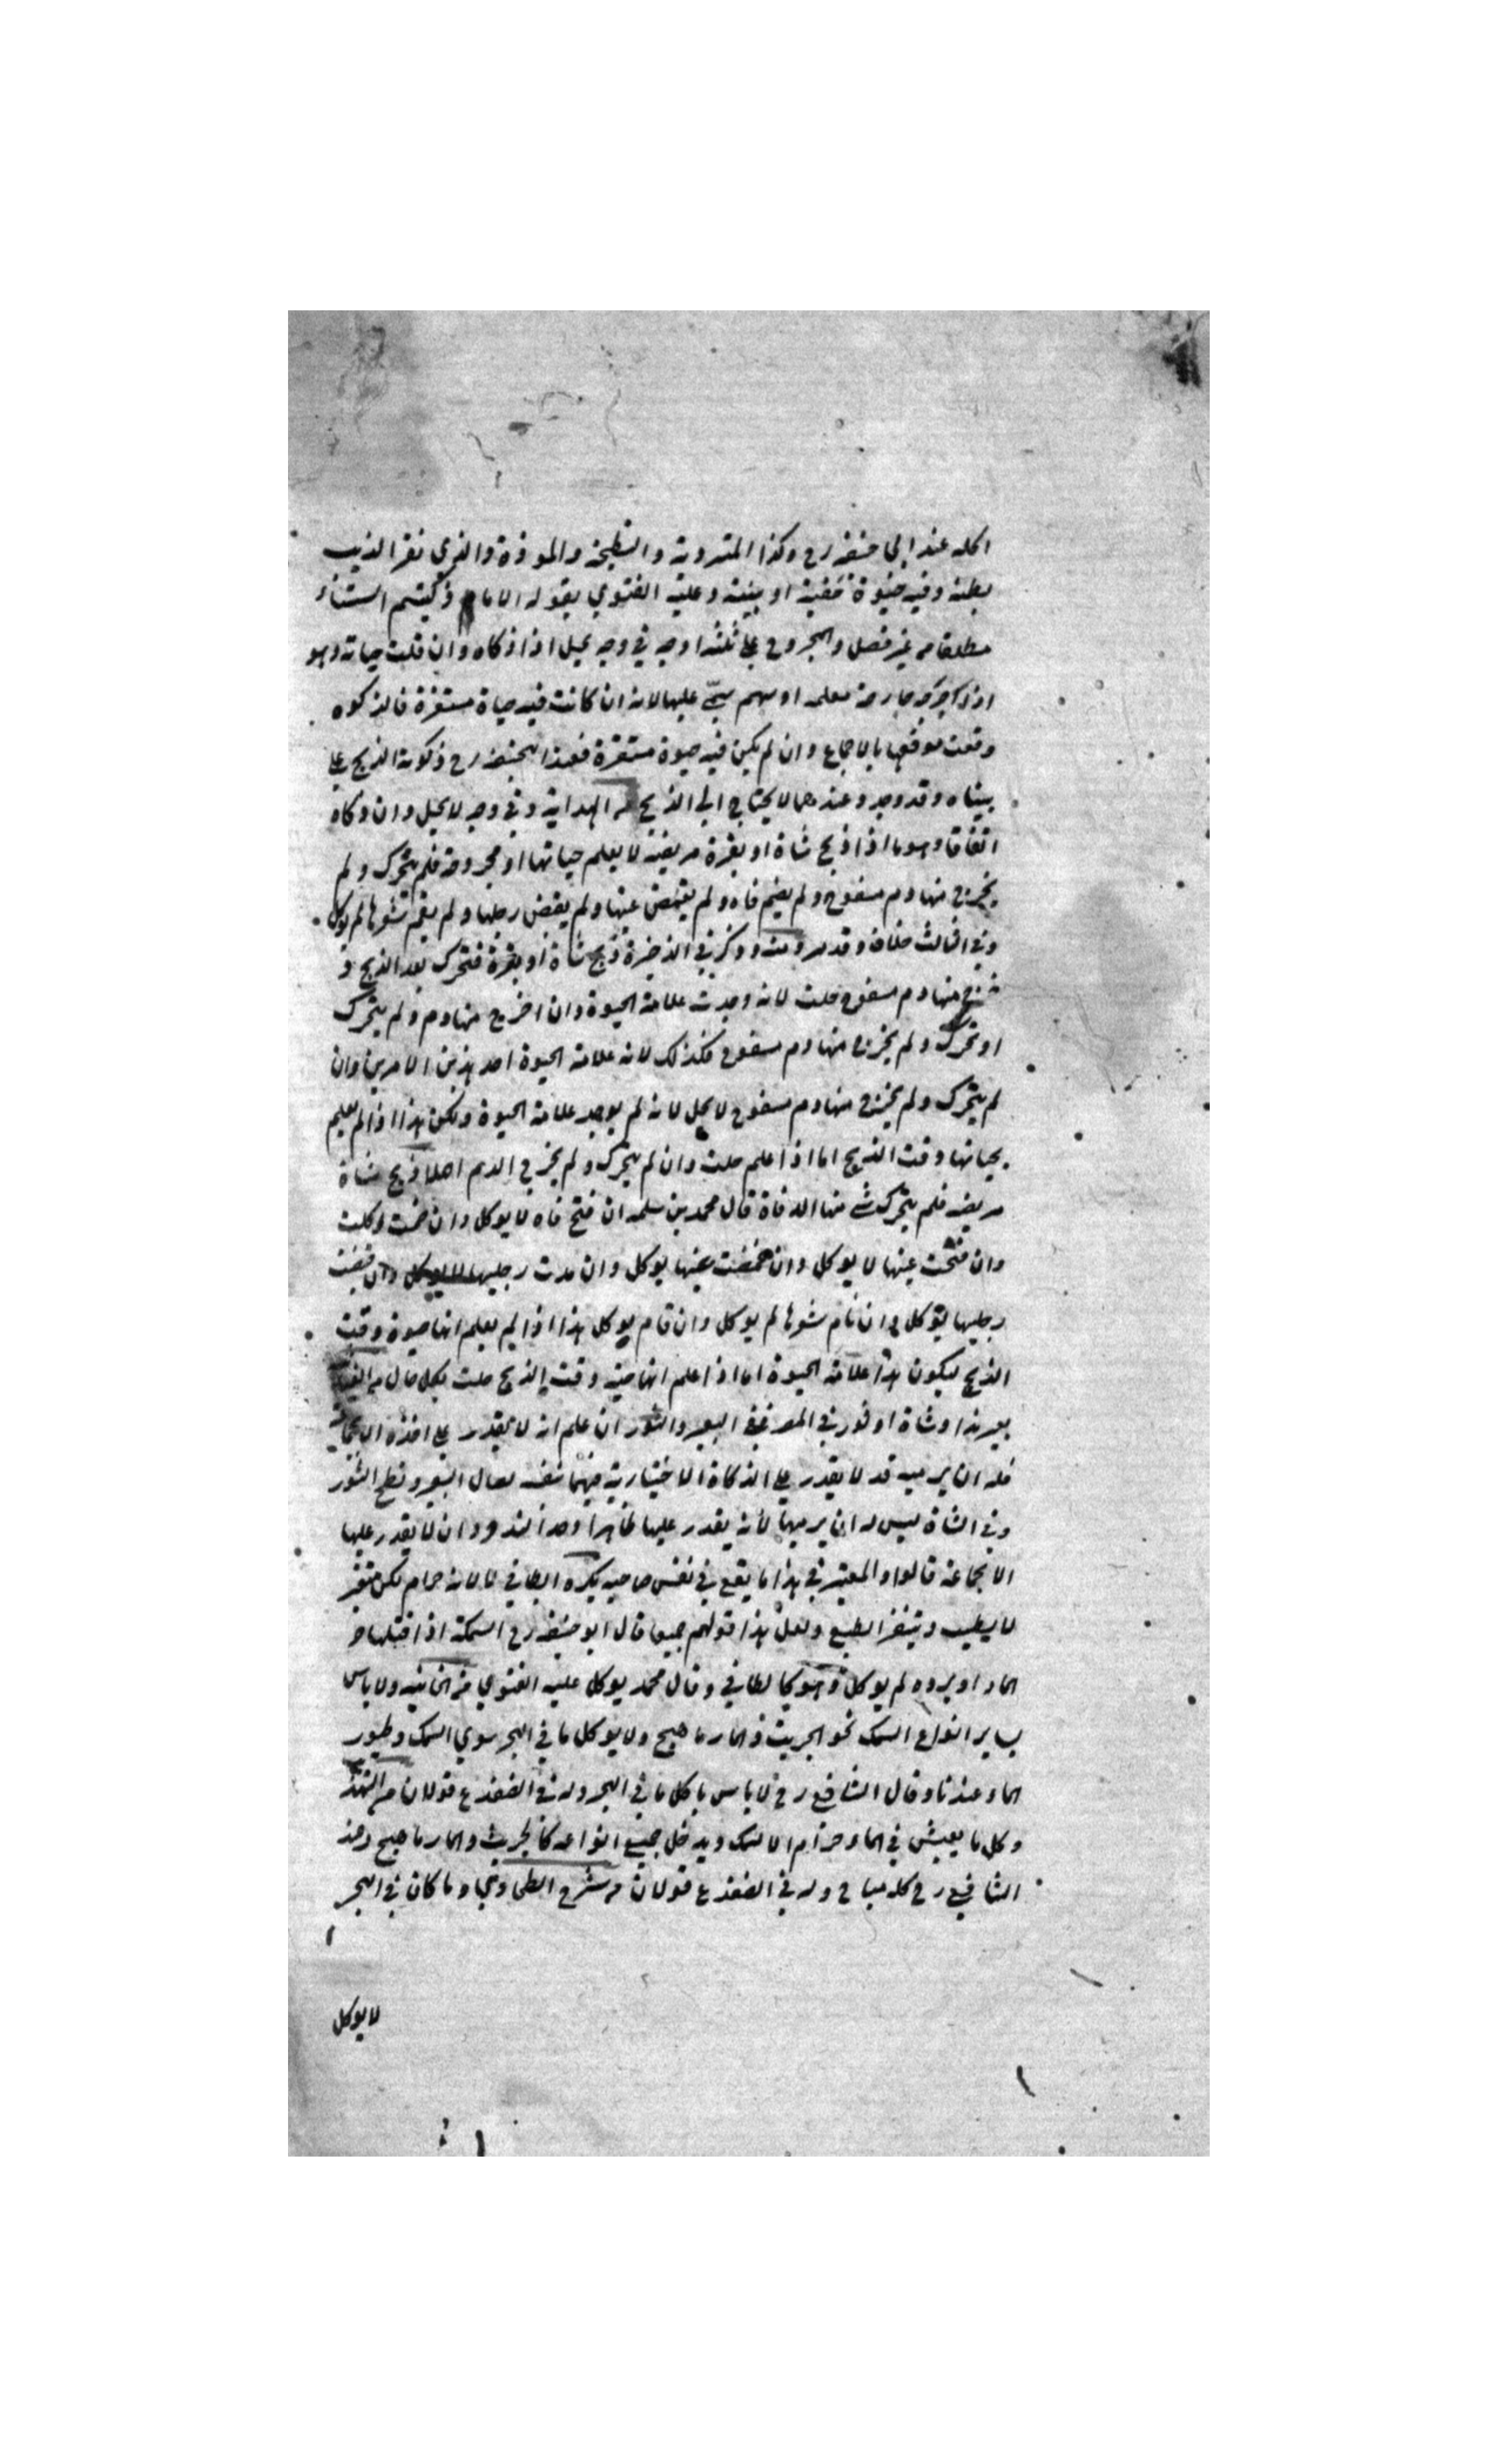 اكله عند ابي حنيفه رح وكذا المتردية والنطيحة والموقوذة والذي نقر الذيب
بطنه وفيه حيوة خفية او بينة وعليه الفتوي بقوله الا ما ذكيتم استثناء
مطلقا من غير فصل والمجروح علي ثلثه اوجه في وجه يحل اذا ذكاه وان قلت حياته وهو
اذا جرحه جارحة معلمه او سهم سمي عليها لانه ان كانت فيه حياة مستقرة فالذكوة
وقعت موقعها بالاجماع وان لم يكن فيه حيوة مستقرة فعند ابيحنيفه رح ذكوته الذبح علي
بيناه وقد وجد وعندهما لا يحتاج الي الذبح من الهداية وفي وجه لا يحل وان ذكاه
اتفاقا وهو ما اذا ذبح شاة او بقرة مريضة لا يعلم حياتها او مجروحة فلم يتحرك ولم
يخرج منها دم مسفوح ولم يضم فاه ولم يغمض عينها ولم يقبض رجلها ولم يقم شعرها لم يوكل
وفي الثالث خلاف وقد وذكر في الذخيرة ذبح شاة او بقرة فتحرك بعد الذبح و
خرج منها دم مسفوح حلت لانه وجدت علامة الحيوة وان اخرج منها دم ولم يتحرك
او تحرك ولم يخرج منها دم مسفوح فكذلك لانه علامة الحيوة احد هذين الامرين وان
لم يتحرك ولم يخرج منها دم مسفوح لا يحل لانه لم يوجد علامة الحيوة ولكن هذا اذا لم يعلم
بحياتها وقت الذبح اما اذا علم حلت وان لم يتحرك ولم يخرج الدم اصلا ذبح شاة
مريضه فلم يتحرك شي منها الا فاه قال محمد بن سلمه ان فتح فاه لا يوكل وان ضمت اوكلت
وان فتحت عينها لا يوكل وان غمضت عينها يوكل وان مدت رجليها لا يوكل وان قبضت
رجليها يوكل وان نام شعرها لم يوكل وان قام يوكل هذا اذا لم يعلم انها حيوة وقت
الذبح ليكون هذا علامة الحيوة اما اذا علم انها حية وقت الذبح حلت بكل حال من
بعير ندا وشاة او ثور في المصر ففي البعير والثور ان علم انه لا يقدر علي اخذه الا بجماعة
فله ان يرميه قد لا يقدر علي الذكاة الاختيارية فيهما البعير ونطح الثور
وفي الشاة ليس له ان يرميها لانه يقدر عليها ظاهرا وان لا يقدر عليها
الا بجماعة قالوا والمعتبر في هذا ما يقع في نفس صاحبه يكره الطافي لا لانه حرام لكن متغير
لا يطيب ويتنفر الطبع ولعل هذا قولهم جميعا قال ابو حنيفه رح السمكة اذا قتلها حر
الماء او برده لم يوكل وهو كالطافي وقال محمد يوكل عليه الفتوي من الخانيه ولا باس
بساير انواع السمك نحو الجريث والمارماهيج ولا يوكل ما في البحر سوي السمك وطيور
الماء عندنا وقال الشافعي رح لا باس باكل ما في البحر وله في الضفدع قولان من
وكل ما يعيش في الماء حرام الا السمك ويدخل جميع انواعه كالجريث والمارماهيج وعند
الشافعي رح كله مباح وله في الضفدع قولان من شرح الطحاوي وما كان في البحر
لا يوكل